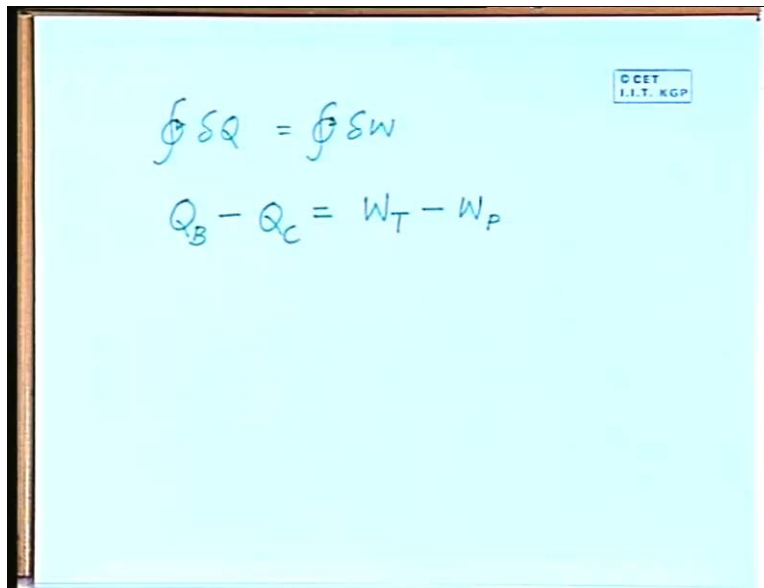 © CET
I.I.T. KGP
∮ δQ = ∮ δW
Q_B − Q_C = W_T − W_P